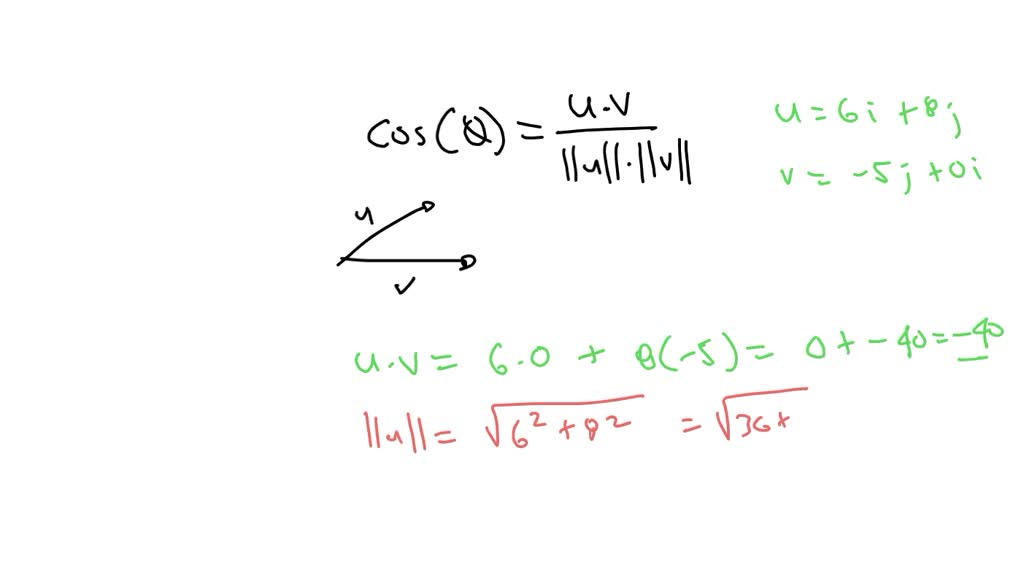 cos(θ) = u·v / ||u||·||v||
u = 6i + 8j
v = -5j + 0i
u
v
u·v = 6·0 + 8(-5) = 0 + -40 = -40
||u|| = √6² + 8² = √36 +